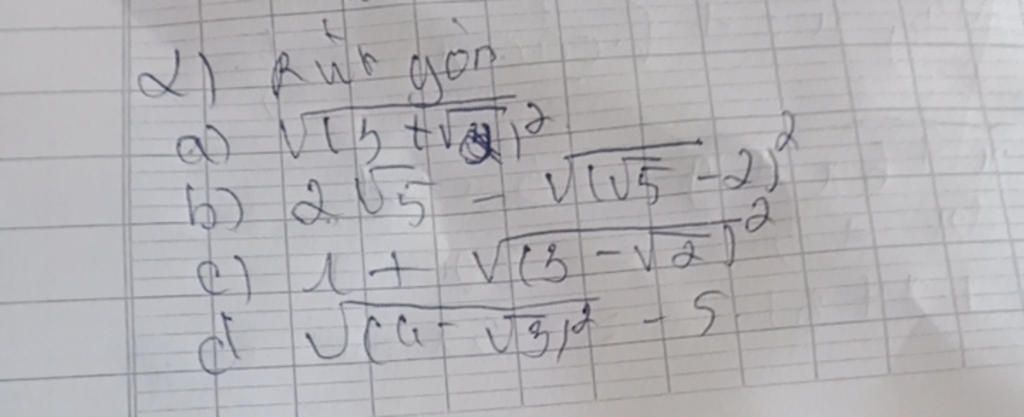 2) Rút gọn
a) √(3 + √2)²
b) 2√5 - √(√5 - 2)²
c) 1 + √(3 - √2)²
d) √(4 - √3)² - 5